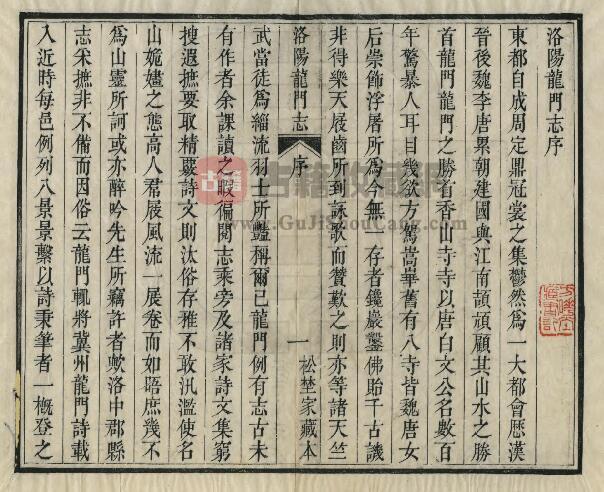 洛陽龍門志序
東都自成周定鼎冠裳之集鬱然爲一大都會歷漢
晉後魏李唐累朝建國與江南頡頏顧其山水之勝
首龍門龍門之勝首香山寺寺以唐白文公名數百
年驚暴人耳目幾欲方駕嵩華舊有八寺皆魏唐女
后崇飾浮屠所爲今無一存者鑱巖鑿佛貽千古譏
非得樂天屐齒所到詠歌而贊歎之則亦等諸天竺
洛陽龍門志 序 一 松埜家藏本
武當徒爲緇流羽士所豔稱爾已龍門例有志古未
有作者余課讀之暇徧閱志乘旁及諸家詩文集窮
搜遐摭要取精覈詩文則汰俗存雅不敢汎濫使名
山姽嫿之態高人屐風流一展卷而如晤庶幾不
爲山靈所訶或亦醉吟先生所竊許者歟洛中郡縣
志采摭非不備而因俗云龍門輒將冀州龍門詩載
入近時每邑例列八景景繫以詩秉筆者一概登之
古籍收藏网
www.GuJiShouCang.com